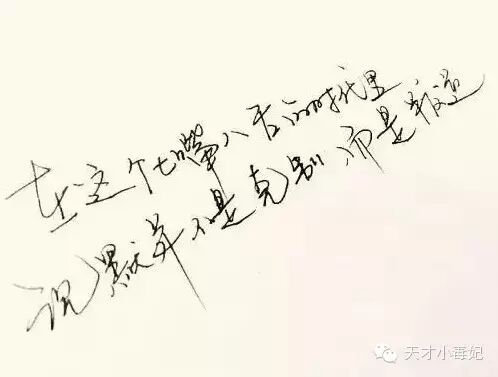 在这个七嘴八舌的时代里
沉默并不是克制 而是叛逆
天才小毒妃